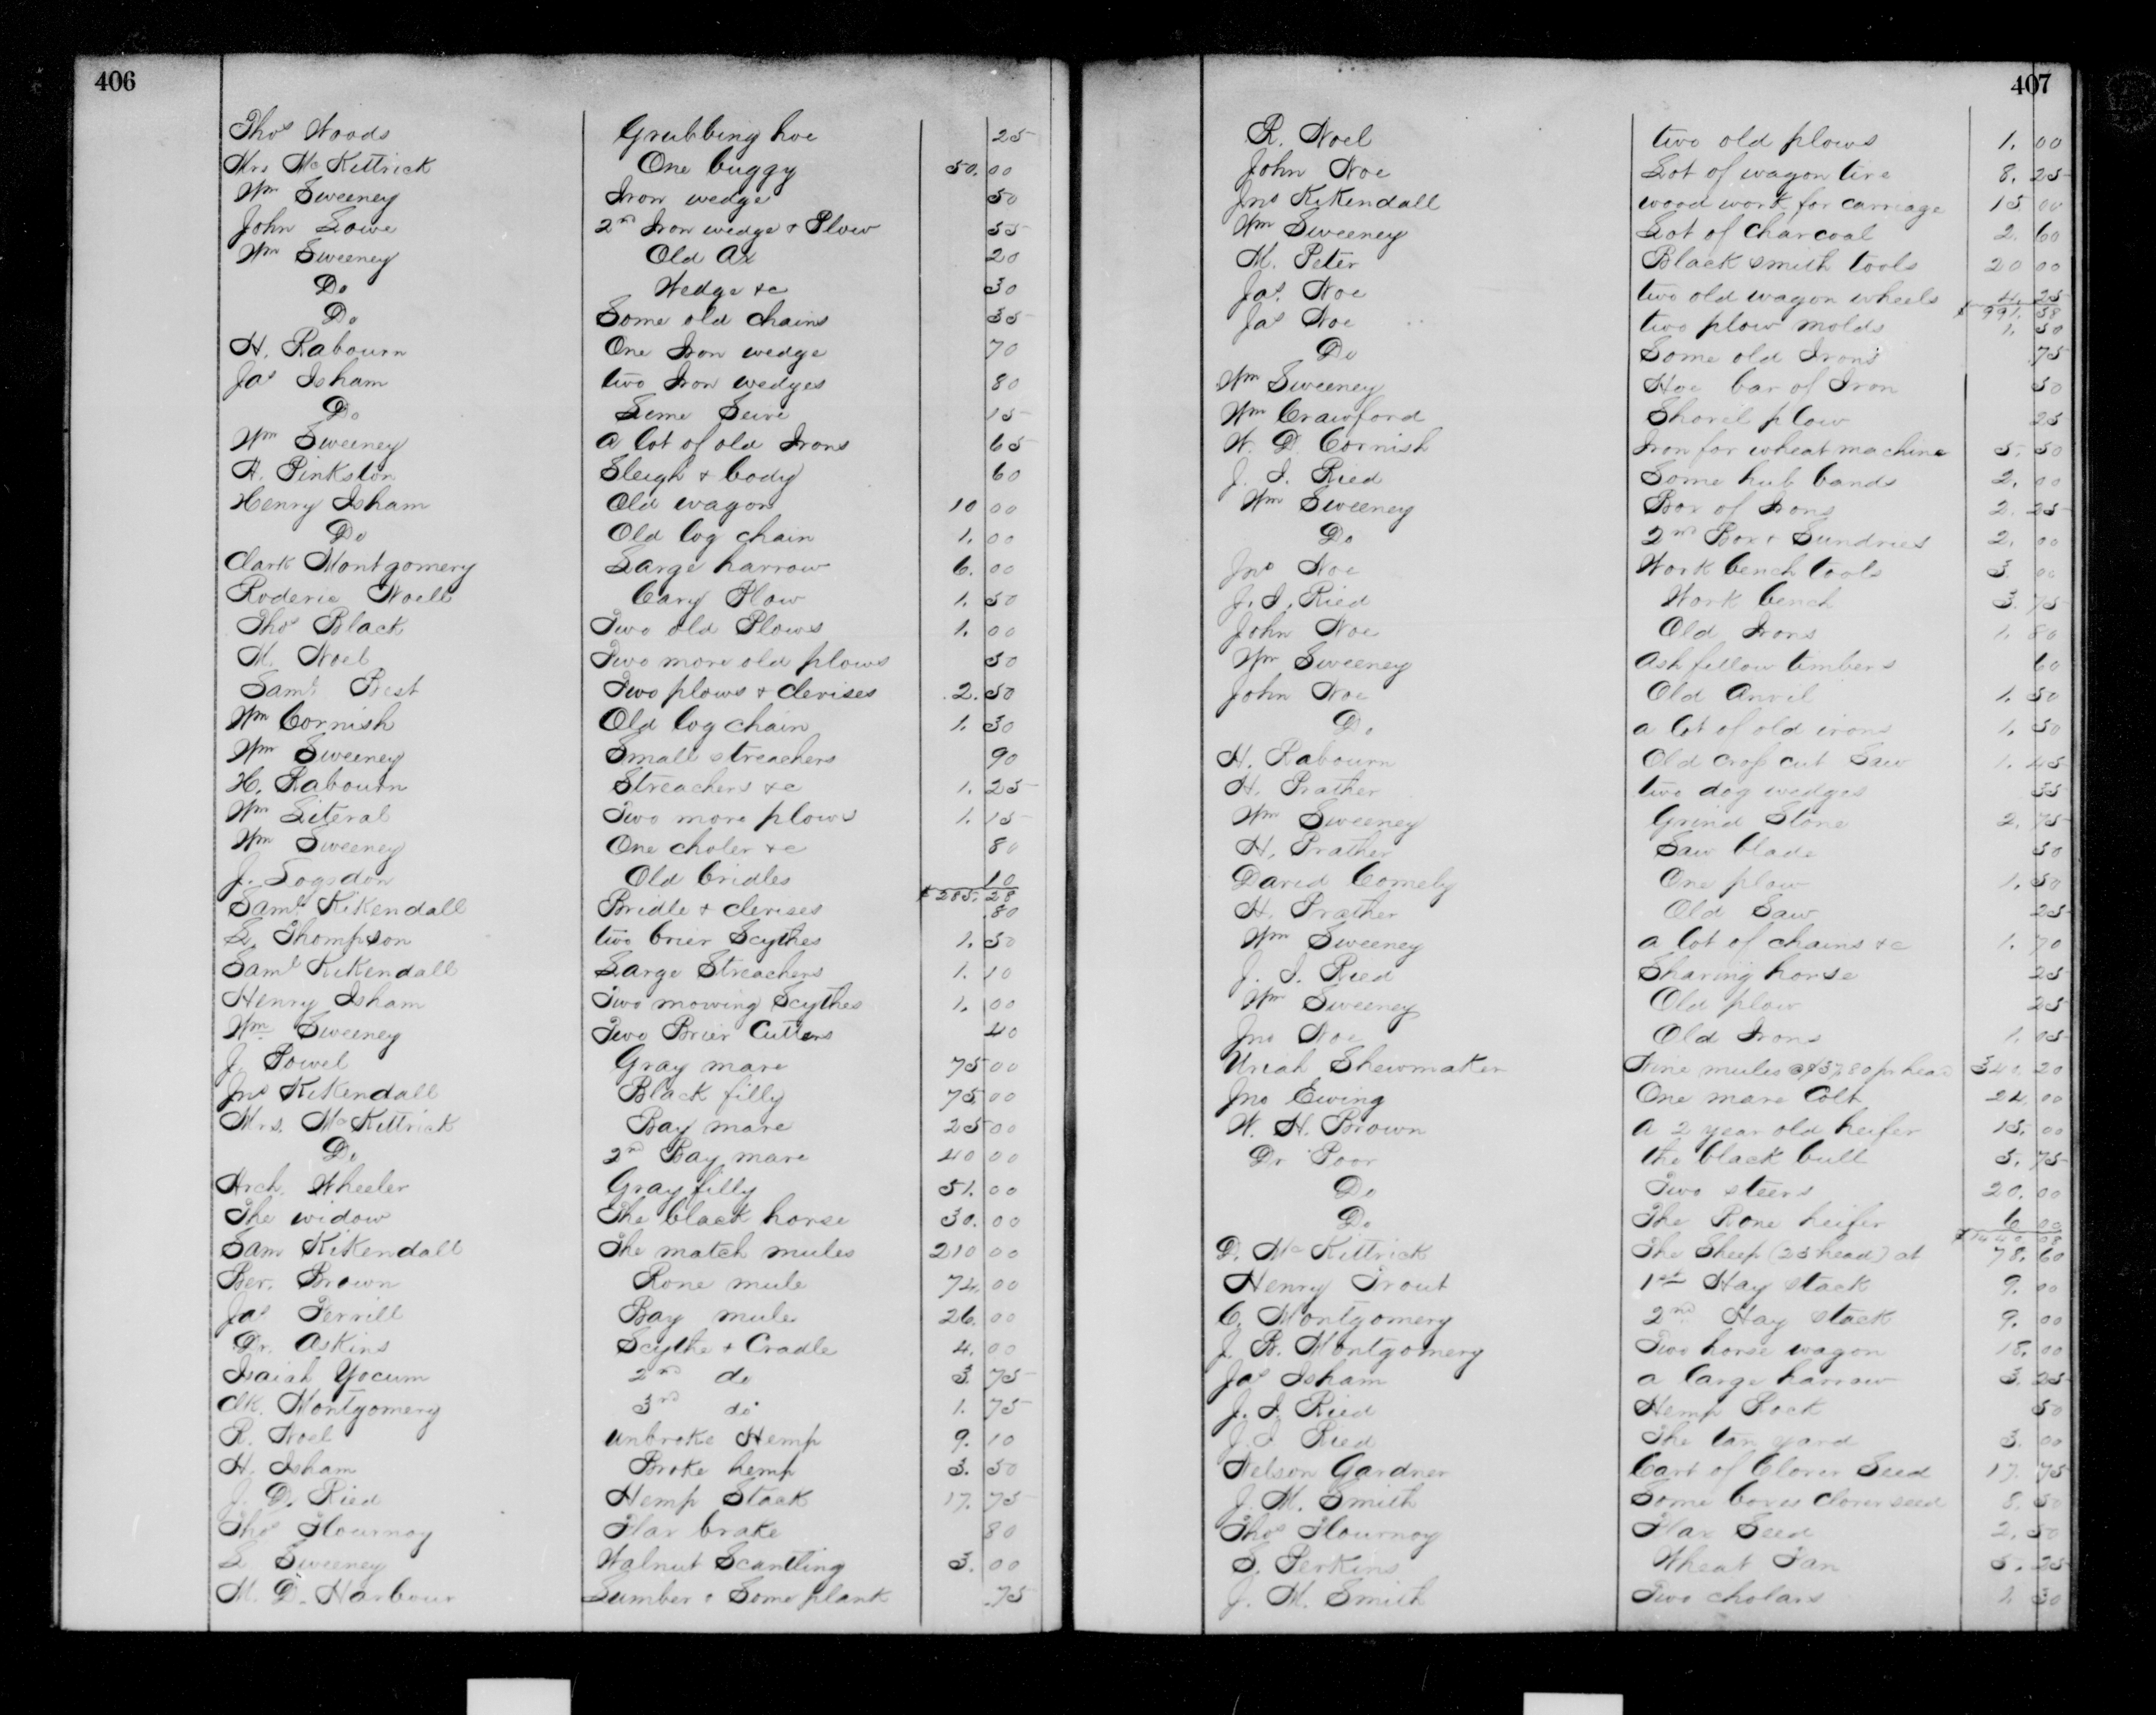 406
Thos Woods Grubbing hoe 25
Mrs McKittrick One buggy 50.00
Wm Sweeney Iron wedge 50
John Lowe 2nd Iron wedge & Plow 55
Wm Sweeney Old Ax 20
Do Wedge &c 30
Do Some old chains 35
H. Rabourn One Iron wedge 70
Jas Isham two Iron wedges 80
Do Seive 15
Wm Sweeney a lot of old Irons 65
H. Pinkston Sleigh & body 60
Henry Isham Old wagon 10 00
Do Old log chain 1.00
Clark Montgomery Large harrow 6.00
Roderic Noell Cary Plow 1.50
Thos Black Two old Plows 1.00
M. Noel Two more old plows 50
Saml Best Two plows & clevises 2.50
Wm Cornish Old log chain 1.30
Wm Sweeney Small streachers 90
H. Rabourn Streachers &c 1.25
Wm Literal Two more plows 1.15
Wm Sweeney One choler &c 80
J. Logsdon Old bridles 10
$285.28
Saml Kikendall Bridle & clevises 80
L. Thompson two brier Scythes 1.50
Saml Kikendall Large Streachers 1.10
Henry Isham Two mowing Scythes 1.00
Wm Sweeney Two Brier Cutters 40
J. Powel Gray mare 75 00
Jno Kikendall Black filly 75.00
Mrs. McKittrick Bay mare 25 00
Do 2nd Bay mare 40 00
Arch. Wheeler Gray filly 51.00
The widow The black horse 30.00
Sam Kikendall The match mules 210 00
Ber. Brown Rone mule 74.00
Jas Terrill Bay mule 26.00
Dr. Askins Scythe & Cradle 4.00
Isaiah Yocum 2nd do 3.75
Clk. Montgomery 3rd do 1.75
R. Noel unbroke Hemp 9.10
H. Isham Broke hemp 3.50
J. D. Ried Hemp Stack 17.75
Thos Flournoy Flax brake 80
L. Sweeney Walnut Scantling 3.00
M. D. Harbour Lumber & Some plank .75
407
R. Noel two old plows 1.00
John Noe Lot of wagon tire 8.25
Jno Kikendall wood work for carriage 15 00
Wm Sweeney Lot of charcoal 2.60
M. Peter Black smith tools 20 00
Jas. Noe two old wagon wheels 4.25
$991.58
Jas Noe two plow molds 1.50
Do Some old Irons .75
Wm Sweeney Hoe bar of Iron 50
Wm Crawford Shovel plow 25
W. D. Cornish Iron for wheat machine 5.50
J. I. Ried Some hub bands 2.00
Wm Sweeney Box of Irons 2.25
Do 2nd Box & Sundries 2.00
Jno Noe Work bench tools 3.00
J. I. Ried Work bench 3.75
John Noe Old Irons 1.80
Wm Sweeney Ash fellow timbers 60
John Noe Old Anvil 1.50
Do a lot of old irons 1.50
H. Rabourn Old cross cut Saw 1.45
H. Prather two dog wedges 55
Wm Sweeney Grind Stone 2.75
H. Prather Saw blade 50
David Comely One plow 1.50
H. Prather Old Saw 25
Wm Sweeney a lot of chains &c 1.70
J. I. Ried Shaving horse 25
Wm Sweeney Old plow 25
Jno Noe Old Irons 1.05
Uriah Shewmaker Nine mules @$37.80 pr head 340.20
Jno Ewing One mare Colt 24.00
W. H. Brown a 2 year old heifer 15.00
Dr Poor the black bull 5.75
Do Two steers 20.00
Do The Rone heifer 6 00
$1440.08
D. McKittrick The Sheep (25 head) at 78.60
Henry Trout 1st Hay stack 9.00
C. Montgomery 2nd Hay stack 9.00
J. B. Montgomery Two horse wagon 18.00
Jas Isham a large harrow 3.25
J. I. Ried Hemp Rock 50
J. I. Ried The tan yard 3.00
Nelson Gardner Cart of Clover Seed 17.75
J. M. Smith Some boxes clover seed 8.50
Thos Flournoy Flax Seed 2.50
S. Perkins Wheat Fan 5.25
J. M. Smith Two cholars 1.30